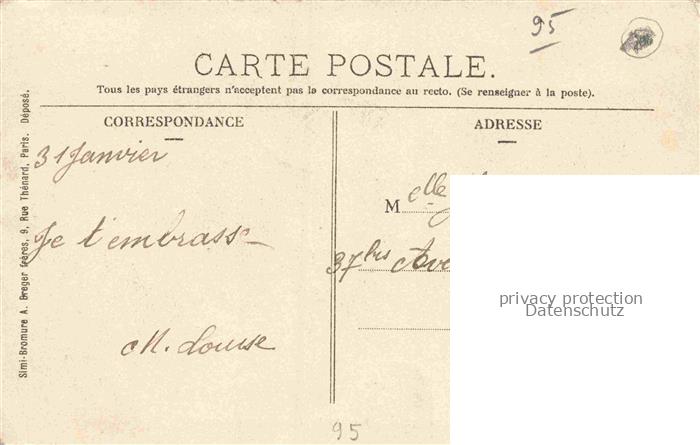 95
CARTE POSTALE.
Tous les pays étrangers n'acceptent pas la correspondance au recto. (Se renseigner à la poste).
CORRESPONDANCE
31 Janvier
Je t'embrasse
M. Louise
Simi-Bromure A. Breger frères, 9, Rue Thénard, Paris. Déposé.
ADRESSE
Melle
37bis Ave
privacy protection
Datenschutz
95